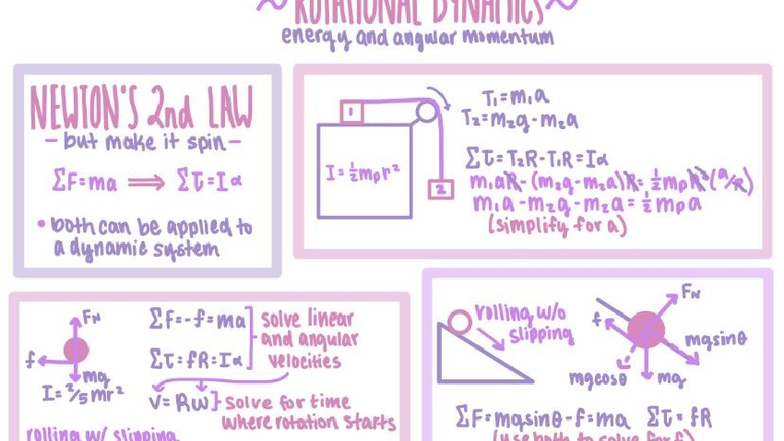 ROTATIONAL DYNAMICS
energy and angular momentum
NEWTON'S 2nd LAW
- but make it spin -
ΣF=ma ⟹ Στ=Iα
• both can be applied to
a dynamic system
1
I=½mₚr²
2
T₁=m₁a
T₂=m₂g-m₂a
Στ=T₂R-T₁R=Iα
m₁aR-(m₂g-m₂a)R=½mₚR²(a/R)
m₁a-m₂g-m₂a=½mₚa
(simplify for a)
FN
f
mg
I=²/5mr²
rolling w/ slipping
ΣF=-f=ma
Στ=fR=Iα
solve linear
and angular
velocities
v=Rω
solve for time
where rotation starts
rolling w/o
slipping
FN
f
mgsinθ
mgcosθ
mg
ΣF=mgsinθ-f=ma Στ=fR
(use both to solve for f)